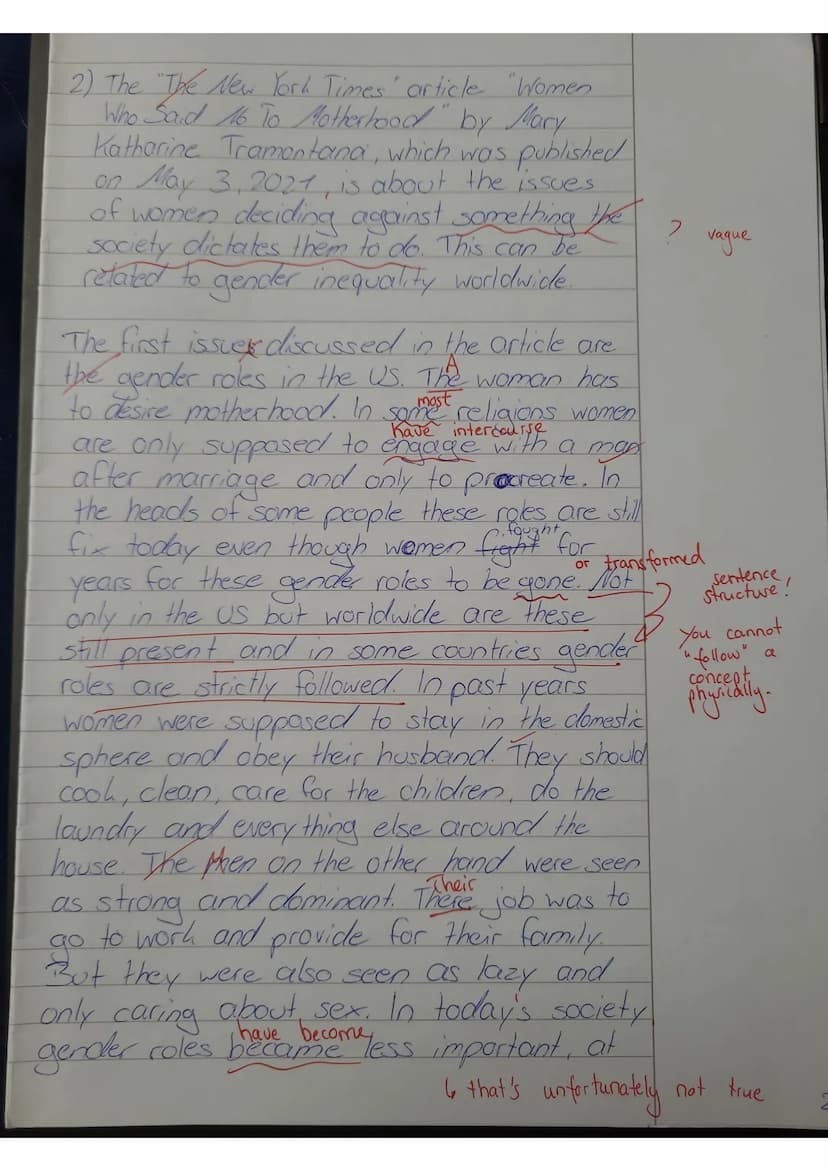 2) The "The New York Times" article "Women
Who Said No To Motherhood" by Mary
Katharine Tramontana, which was published
on May 3, 2021, is about the issues
of women deciding against something the
? vague
society dictates them to do. This can be
related to gender inequality worldwide.
The first issues discussed in the article are
A
the gender roles in the US. The woman has
most
to desire motherhood. In some religions women
have intercourse
are only supposed to engage with a man
after marriage and only to procreate. In
the heads of some people these roles are still
fought
fix today even though women fight for
or transformed
years for these gender roles to be gone. Not
sentence
structure!
only in the US but worldwide are these
still present and in some countries gender
You cannot
"follow" a
concept
physically.
roles are strictly followed. In past years
women were supposed to stay in the domestic
sphere and obey their husband. They should
cook, clean, care for the children, do the
laundry and everything else around the
house. The Men on the other hand were seen
Their
as strong and dominant. There job was to
go to work and provide for their family.
But they were also seen as lazy and
only caring about sex. In today's society
have become
gender roles became less important, at
↳ that's unfortunately not true